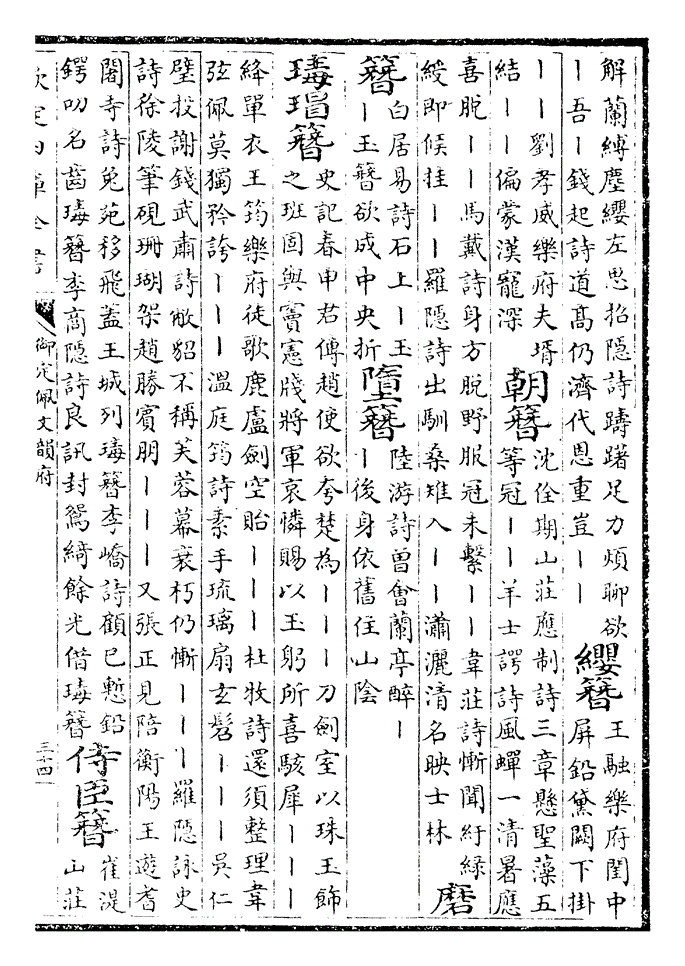 解蘭縛塵纓左思招隱詩躊躇足力煩聊欲
丨吾丨錢起詩道髙仍濟代恩重豈丨丨
纓簪
王融樂府閨中
屏鉛黛闕下掛
丨丨劉孝威樂府夫壻
結丨丨偏蒙漢寵深
朝簪
沈佺期山莊應制詩三章懸聖藻五
等冠丨丨羊士諤詩風蟬一清暑應
喜脫丨丨馬戴詩身方脫野服冠未繫丨丨韋莊詩慚聞紆緑
綬即候挂丨丨羅隱詩出馴桑雉入丨丨瀟灑清名映士林
磨
簪
白居易詩石上丨玉
丨玉簪欲成中央折
墮簪
陸游詩曾會蘭亭醉丨
丨後身依舊住山陰
瑇瑁簪
史記春申君傳趙使欲夸楚為丨丨丨刀劍室以珠玉飾
之班固與竇憲牋將軍哀憐賜以玉躬所喜駭犀丨丨丨
絳單衣王筠樂府徒歌鹿盧劍空貽丨丨丨杜牧詩還須整理韋
弦佩莫獨矜誇丨丨丨溫庭筠詩素手琉璃扇玄髫丨丨丨吳仁
璧投謝錢武肅詩敝貂不稱芙蓉幕衰朽仍慚丨丨丨羅隱詠史
詩徐陵筆硯珊瑚架趙勝賓朋丨丨丨又張正見陪衡陽王遊耆
闍寺詩兔苑移飛蓋王城列瑇簪李嶠詩顧已慙鉛
鍔叨名齒瑇簪李商隱詩良訊封鴛綺餘光借瑇簪
侍臣簪
崔湜
山莊
欽定四庫全書
御定佩文韻府
三十四